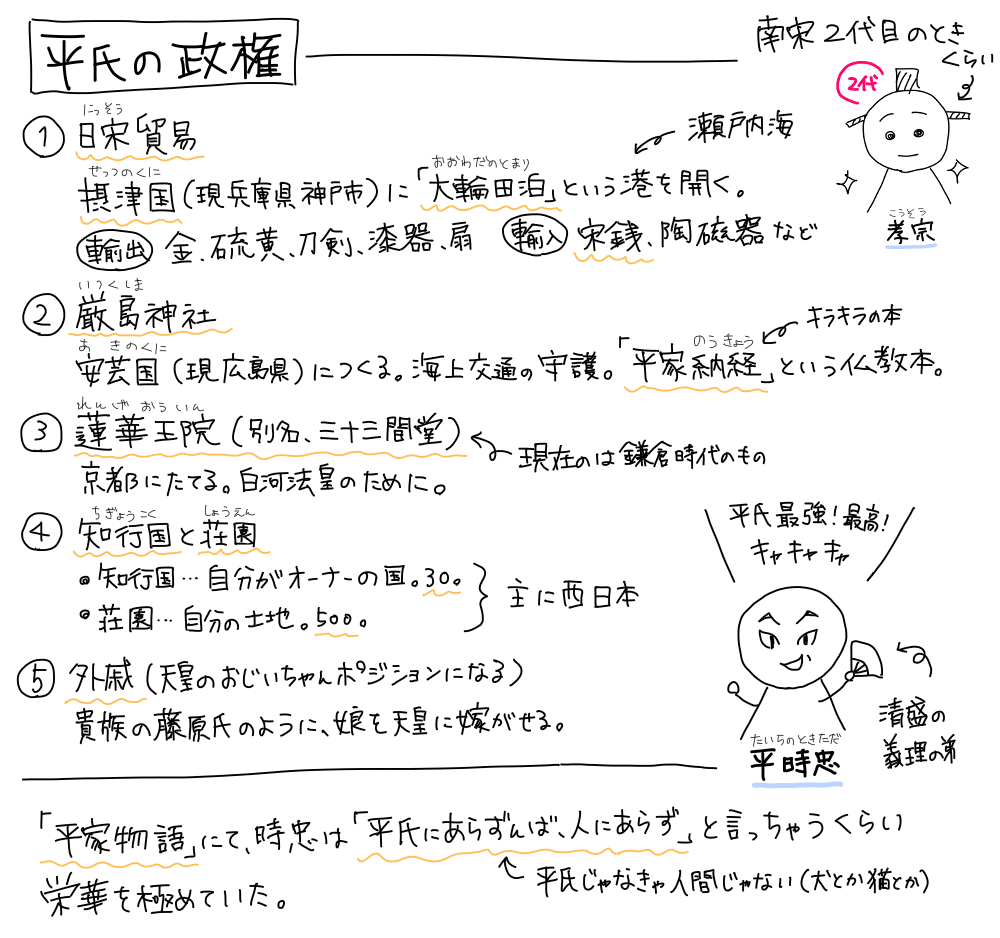 平氏の政権
南宋2代目のとき
くらい
2代
こうそう
孝宗
にっそう
① 日宋貿易
瀬戸内海
せっつのくに
おおわだのとまり
摂津国(現兵庫県神戸市)に「大輪田泊」という港を開く。
輸出 金、硫黄、刀剣、漆器、扇 輸入 宋銭、陶磁器など
いつくしま
② 厳島神社
キラキラの本
あきのくに
のうきょう
安芸国(現広島県)につくる。海上交通の守護。「平家納経」という仏教本。
れんげおういん
③ 蓮華王院(別名、三十三間堂)
現在のは鎌倉時代のもの
京都にたてる。白河法皇のために。
ちぎょうこく しょうえん
④ 知行国と荘園
・知行国…自分がオーナーの国。30。
・荘園…自分の土地。500。
主に西日本
平氏最強!最高!
キャキャキャ
⑤ 外戚(天皇のおじいちゃんポジションになる)
貴族の藤原氏のように、娘を天皇に嫁がせる。
清盛の
義理の弟
たいらのときただ
平時忠
「平家物語」にて、時忠は「平氏にあらずんば、人にあらず」と言っちゃうくらい
平氏じゃなきゃ人間じゃない(犬とか猫とか)
栄華を極めていた。